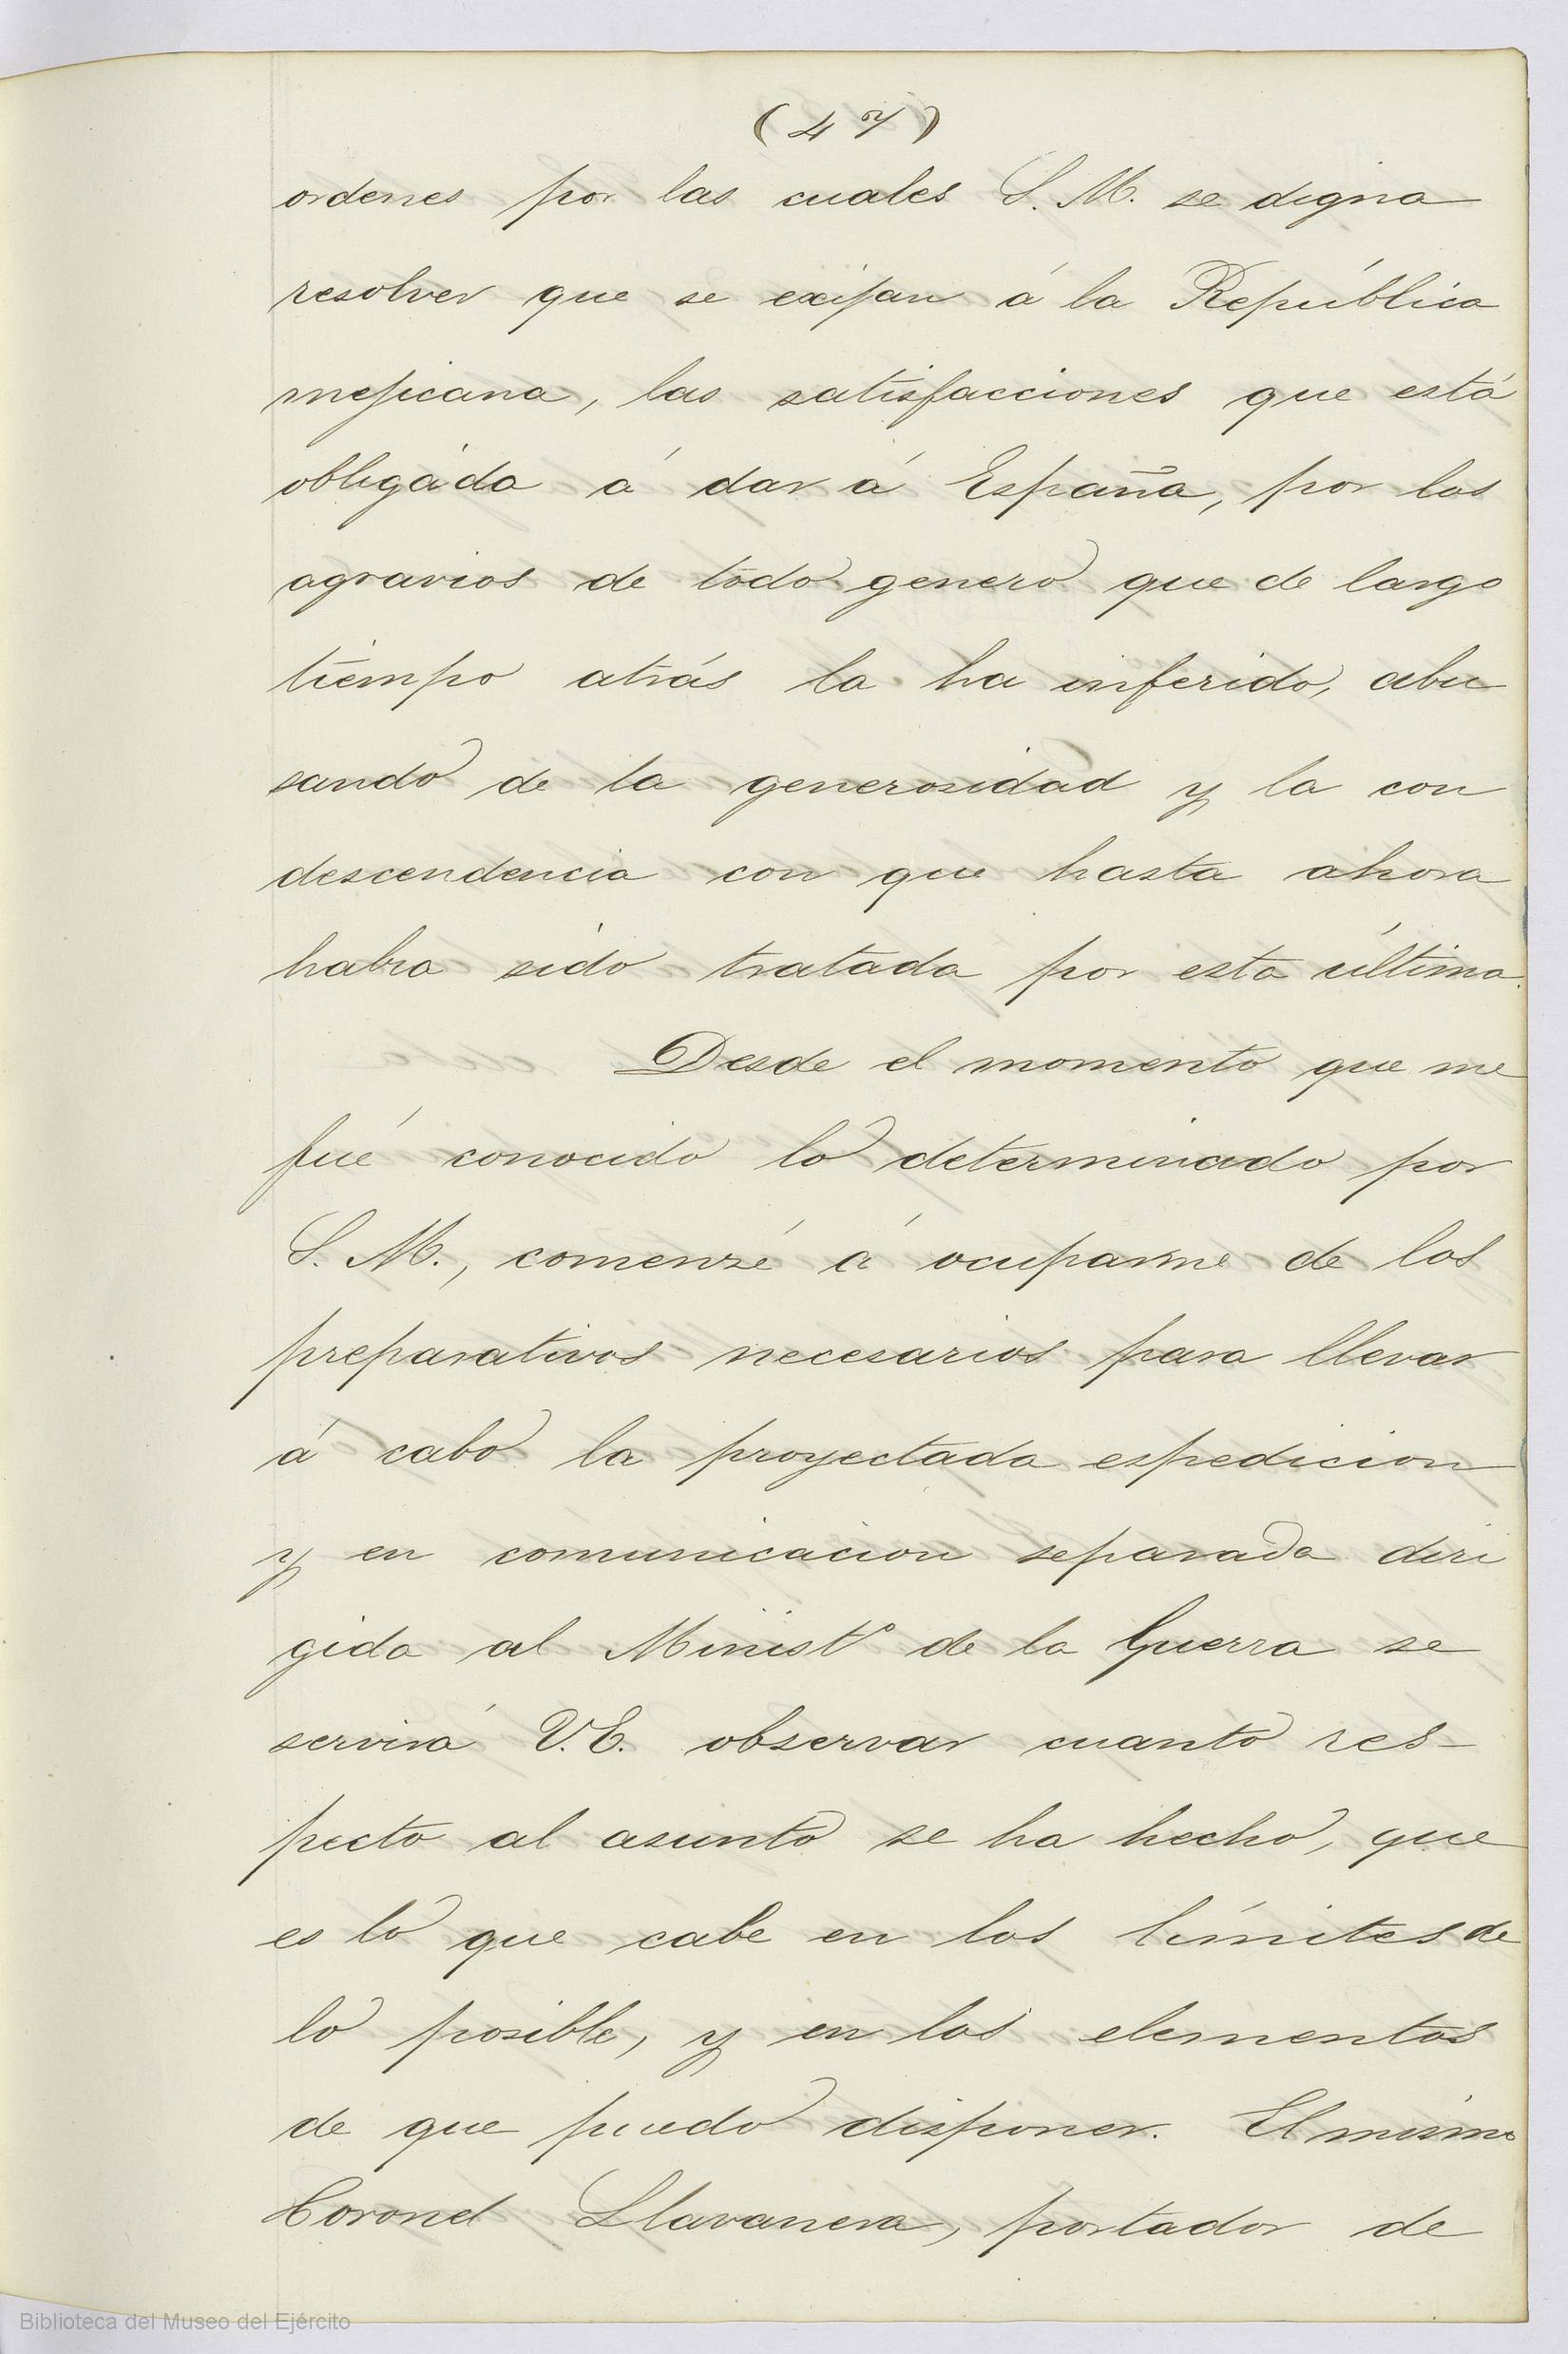 (47)
ordenes por las cuales S. M. se digna
resolver que se exijan á la República
mejicana, las satisfacciones que está
obligada á dar á España, por los
agravios de todo genero que de largo
tiempo atrás la ha inferido, abu
sando de la generosidad y la con
descendencia con que hasta ahora
habia sido tratada por esta última.
Desde el momento que me
fué conocido lo determinado por
S. M., comenzé á ocuparme de los
preparativos necesarios para llevar
á cabo la proyectada espedicion
y en comunicacion separada diri
gida al Ministº de la Guerra se
servirá V.E. observar cuanto res-
pecto al asunto se ha hecho, que
es lo que cabe en los límites de
lo posible, y en los elementos
de que puedo disponer. El mismo
Coronel Llavanera, portador de
Biblioteca del Museo del Ejército